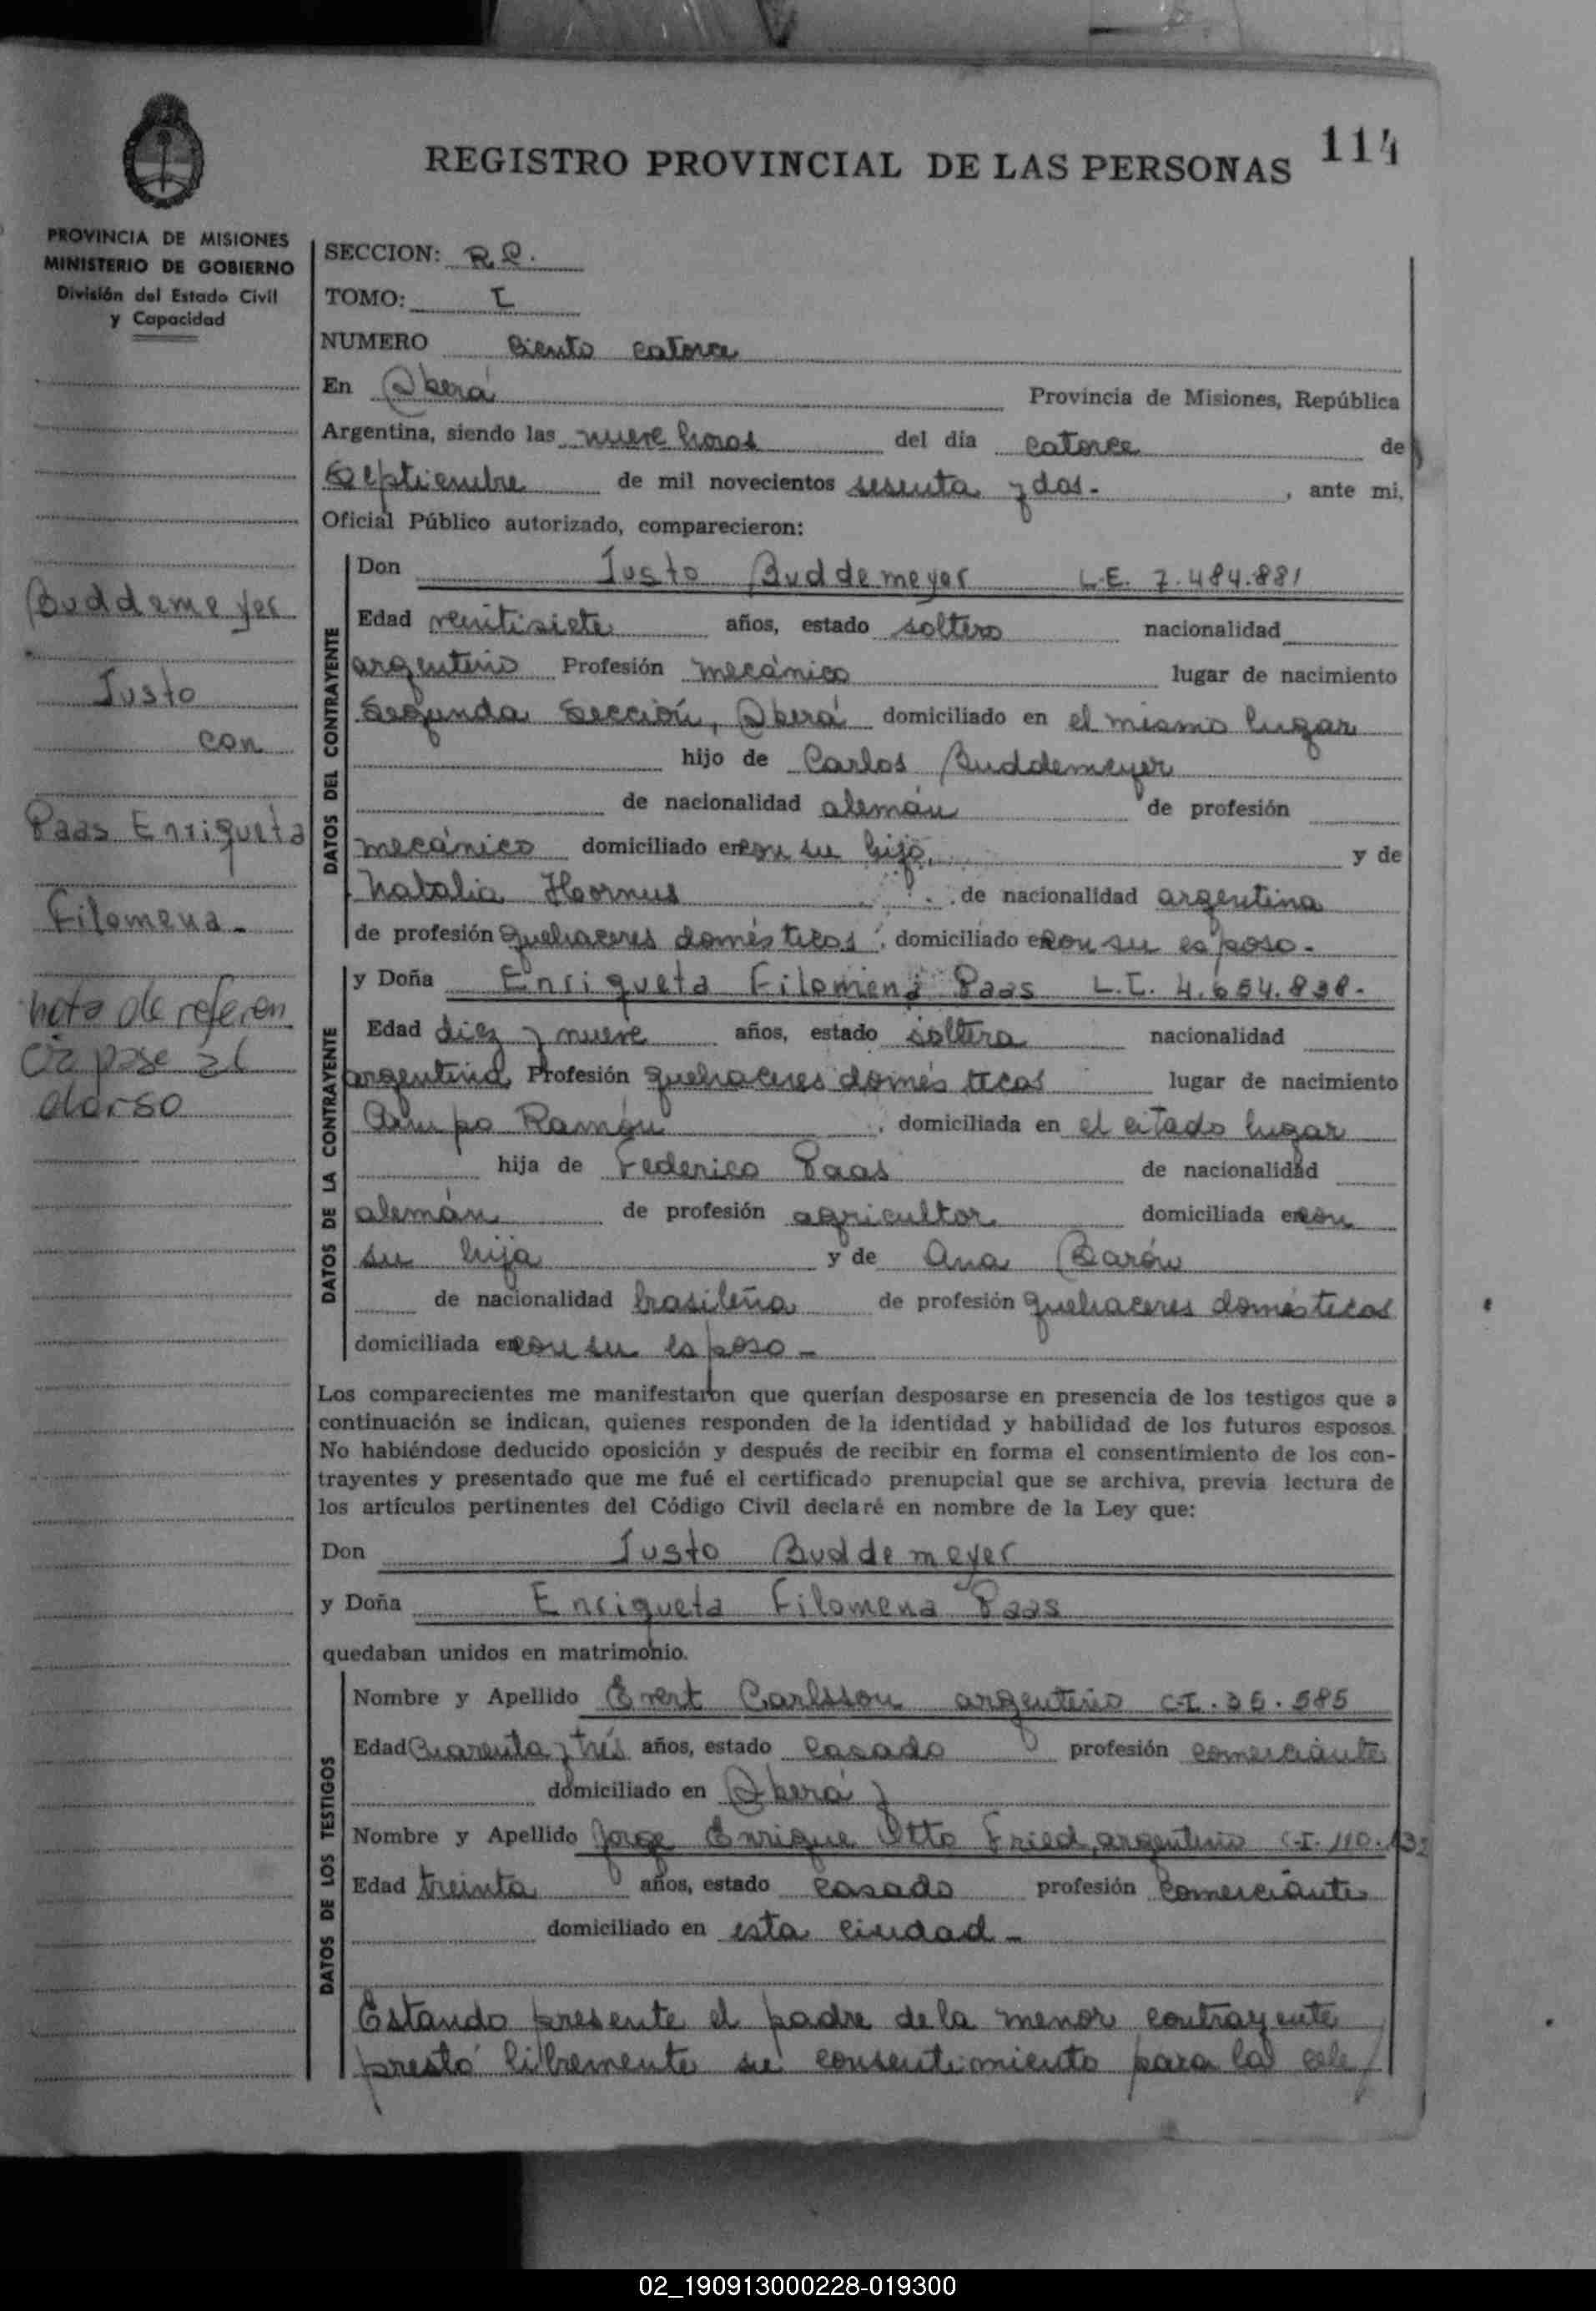 114
REGISTRO PROVINCIAL DE LAS PERSONAS
PROVINCIA DE MISIONES
MINISTERIO DE GOBIERNO
División del Estado Civil
y Capacidad
SECCION: R.C.
TOMO: I
NUMERO Ciento catorce
En Oberá Provincia de Misiones, República
Argentina, siendo las nueve horas del día catorce de
Septiembre de mil novecientos sesenta y dos.- , ante mi,
Oficial Público autorizado, comparecieron:
Buddemeyer
Justo
con
Paas Enriqueta
Filomena.-
Nota de referen
cia pase al
dorso
DATOS DEL CONTRAYENTE
Don Justo Buddemeyer L.E. 7.484.881
Edad veintisiete años, estado soltero nacionalidad
argentino Profesión mecánico lugar de nacimiento
Segunda Sección, Oberá domiciliado en el mismo lugar
hijo de Carlos Buddemeyer
de nacionalidad alemán de profesión
mecánico domiciliado en con su hijo, y de
Natalia Hornus de nacionalidad argentina
de profesión quehaceres domésticos, domiciliado en con su esposo.-
DATOS DE LA CONTRAYENTE
y Doña Enriqueta Filomena Paas L.C. 4.654.838.-
Edad diez y nueve años, estado soltera nacionalidad
argentina, Profesión quehaceres domésticos lugar de nacimiento
Campo Ramón , domiciliada en el citado lugar
hija de Federico Paas de nacionalidad
alemán de profesión agricultor domiciliada en con
su hija y de Ana Barón
de nacionalidad brasileña de profesión quehaceres domésticos
domiciliada en con su esposo.-
Los comparecientes me manifestaron que querían desposarse en presencia de los testigos que a
continuación se indican, quienes responden de la identidad y habilidad de los futuros esposos.
No habiéndose deducido oposición y después de recibir en forma el consentimiento de los con-
trayentes y presentado que me fué el certificado prenupcial que se archiva, previa lectura de
los artículos pertinentes del Código Civil declaré en nombre de la Ley que:
Don Justo Buddemeyer
y Doña Enriqueta Filomena Paas
quedaban unidos en matrimonio.
DATOS DE LOS TESTIGOS
Nombre y Apellido Evert Carlsson argentino C.I. 35.585
Edad Cuarenta y trés años, estado casado profesión comerciante
domiciliado en Oberá y
Nombre y Apellido Jorge Enrique Otto Fried, argentino C.I. 110.132
Edad treinta años, estado casado profesión comerciante
domiciliado en esta ciudad.-
Estando presente el padre de la menor contrayente
prestó libremente su consentimiento para la cele/
02_190913000228-019300